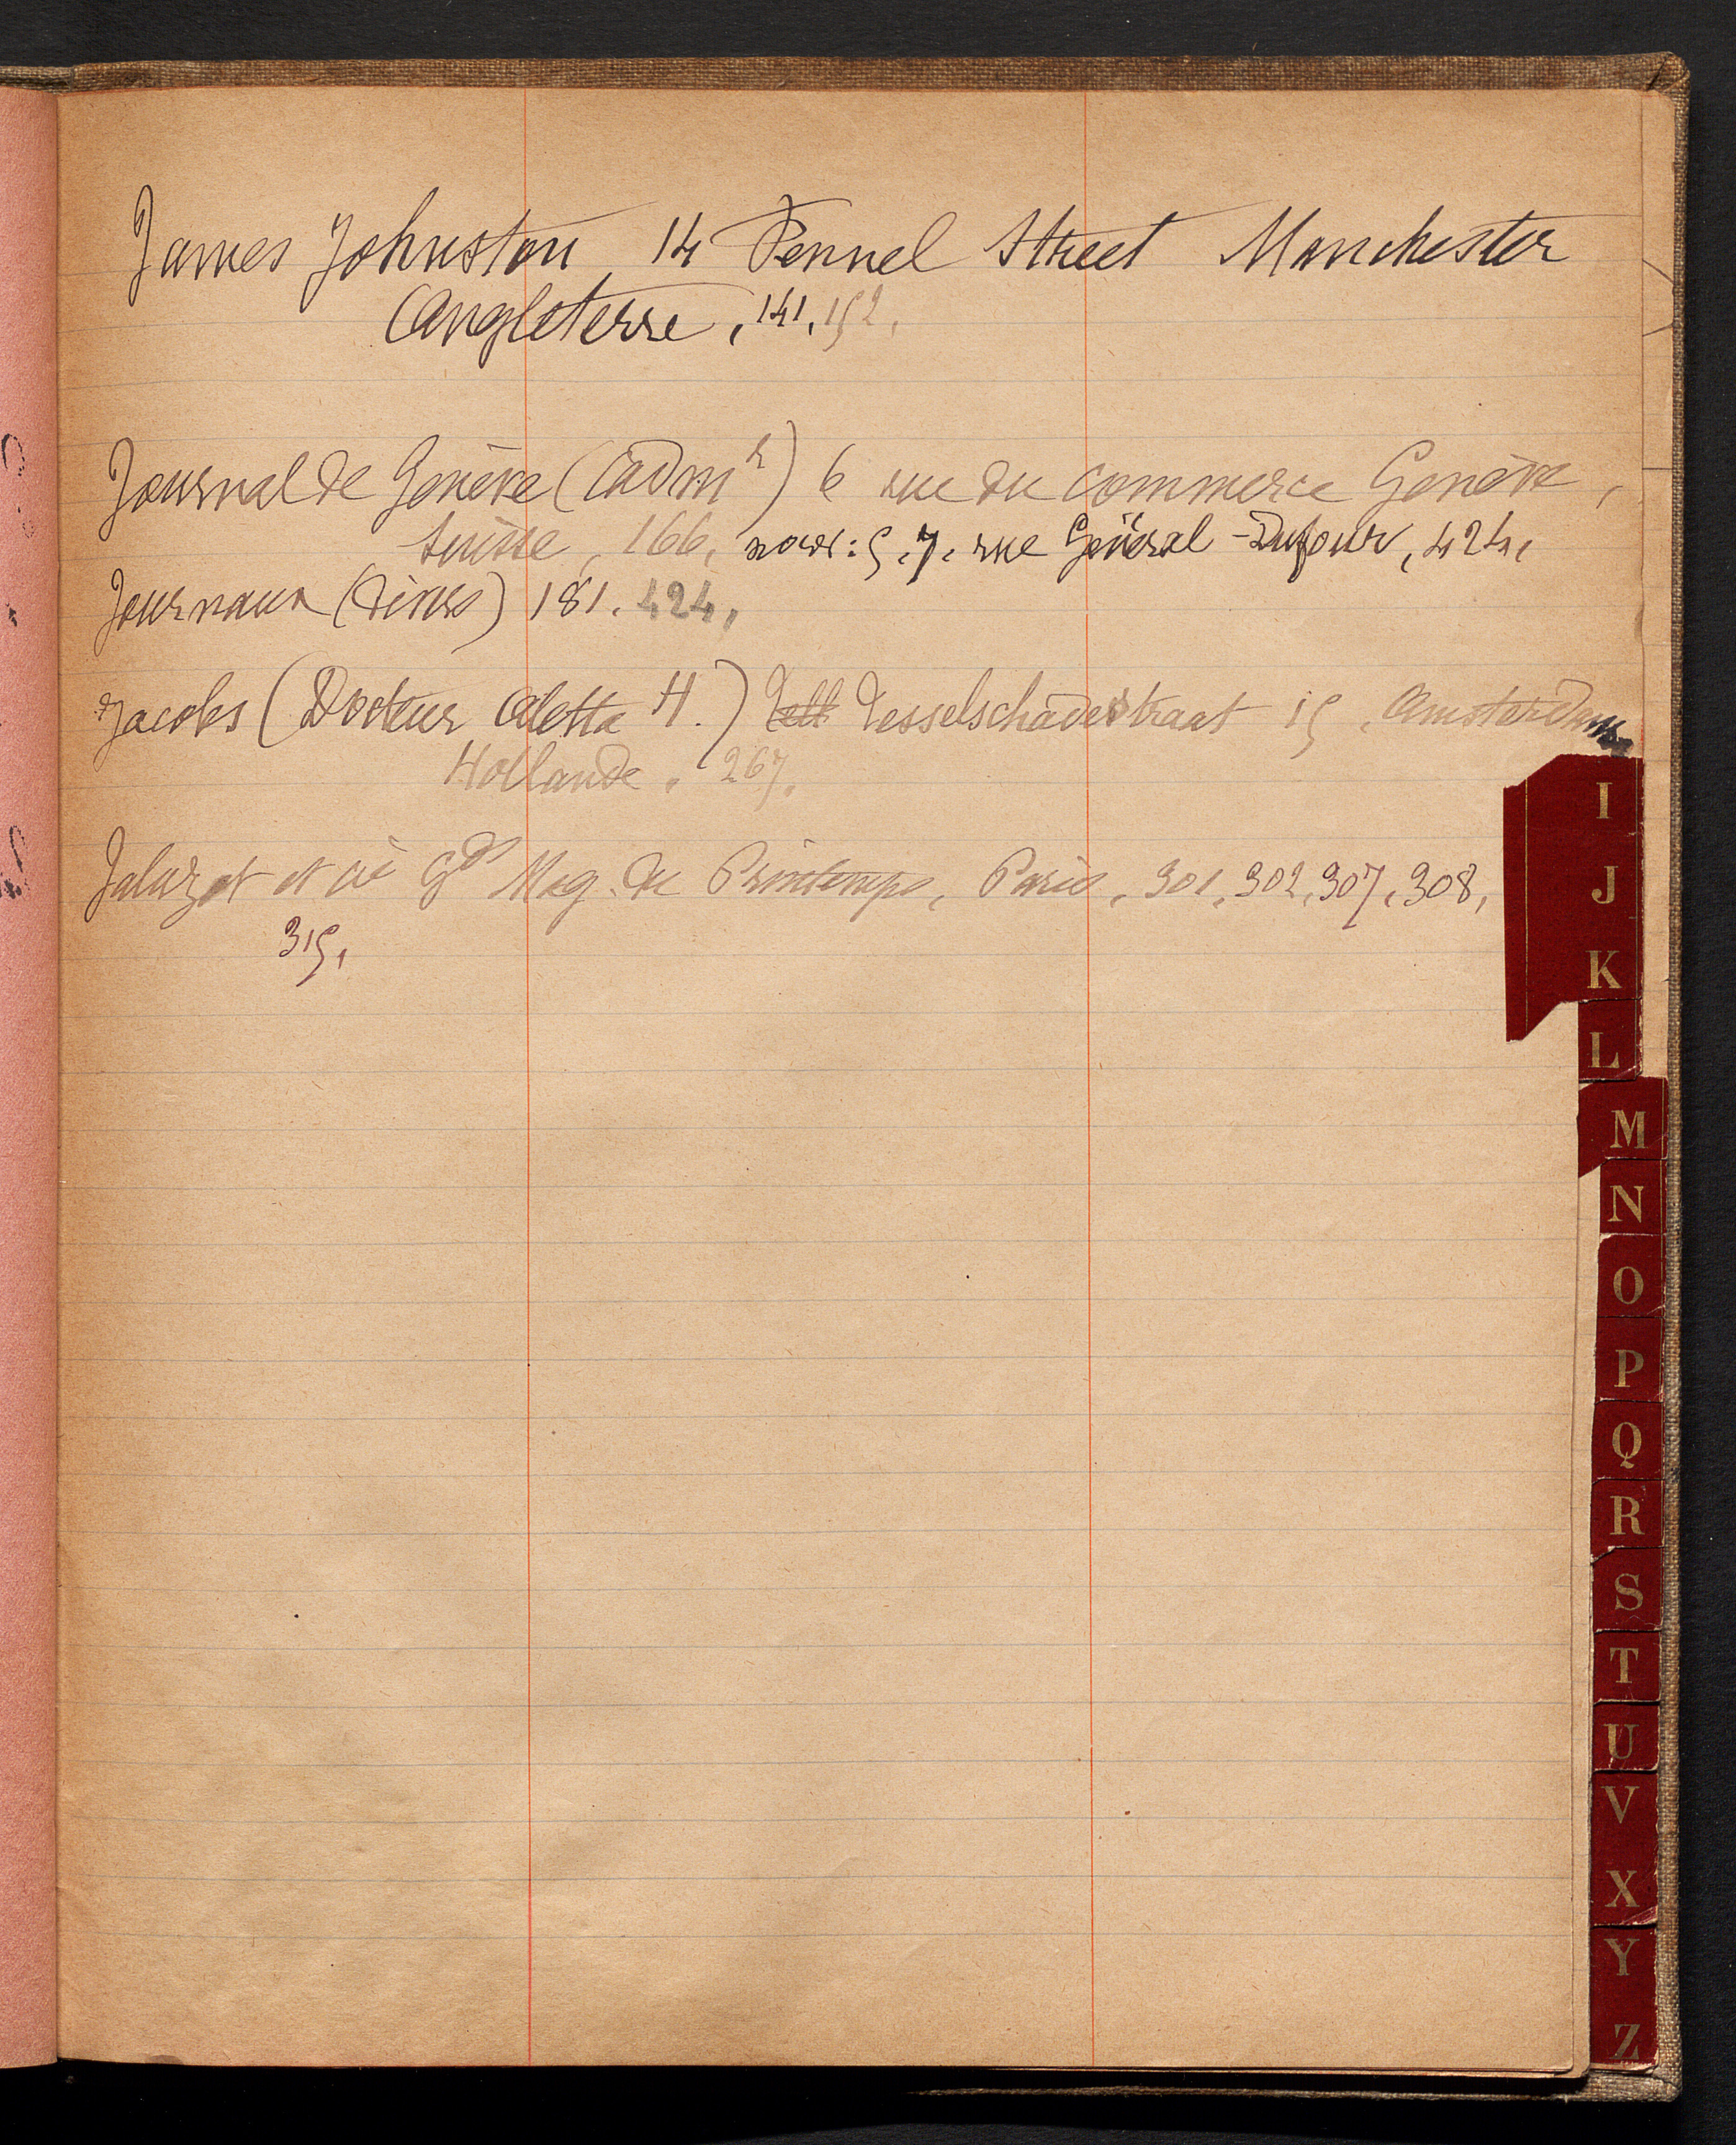 James Johnston, 14 Fennel Street Manchester
Angleterre, 141, 152,
Journal de Genève (adm r) 6 rue du commerce Genève,
Suisse, 166, nouv: 5.7. rue Général-Dufour, 424,
Journaux (divers) 181. 424,
Jacobs (Docteur Aletta H.) Tesselschadestraat 15, Amsterdam
Hollande, 267,
Jaluzot et cie Gds Mag. du Printemps, Paris, 301, 302, 307, 308,
315,
I
J
K
L
M
N
O
P
Q
R
S
T
U
V
X
Y
Z